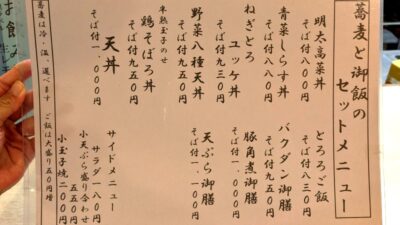 蕎麦と御飯の
セットメニュー
明太高菜丼
そば付八〇〇円
とろろご飯
そば付八三〇円
青菜しらす丼
そば付八八〇円
バクダン御膳
そば付九五〇円
ねぎとろ
ユッケ丼
そば付九三〇円
豚角煮御膳
そば付一、〇〇〇円
野菜八種天丼
そば付九五〇円
天ぷら御膳
そば付一、一〇〇円
半熟玉子のせ
鶏そぼろ丼
そば付九五〇円
天丼
そば付一、〇〇〇円
サイドメニュー
サラダ一八〇円
小天ぷら盛り合わせ
五五〇円
小玉子焼二〇〇円
蕎麦は冷・温、選べます
ご飯は大盛り五〇円増